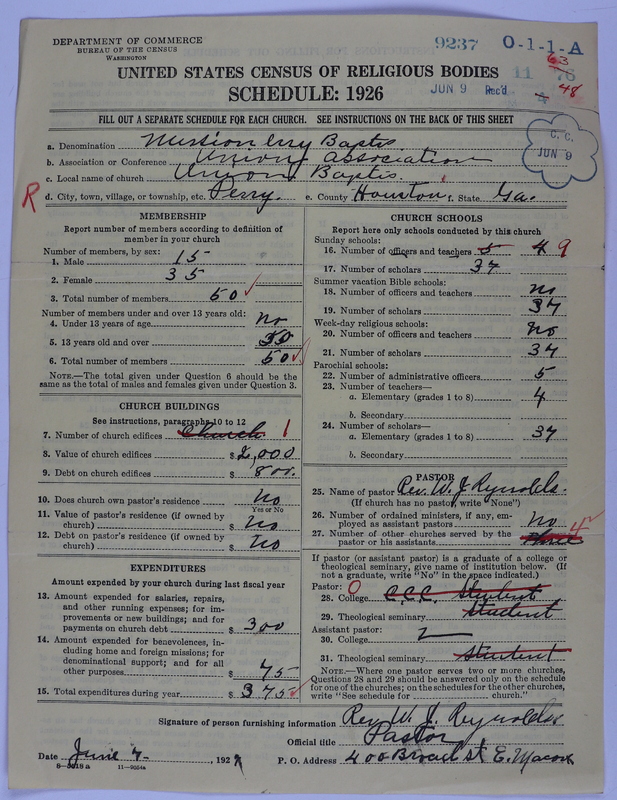 DEPARTMENT OF COMMERCE
BUREAU OF THE CENSUS
WASHINGTON
9237 O-1-1-A
63
11 76
JUN 9 Rec'd 4 48
UNITED STATES CENSUS OF RELIGIOUS BODIES
SCHEDULE: 1926
FILL OUT A SEPARATE SCHEDULE FOR EACH CHURCH. SEE INSTRUCTIONS ON THE BACK OF THIS SHEET
C. C.
JUN 9
a. Denomination Missionary Baptis
b. Association or Conference Union Association
c. Local name of church Union Baptis
R d. City, town, village, or township, etc. Perry. e. County Houston f. State Ga.
MEMBERSHIP
Report number of members according to definition of member in your church
Number of members, by sex:
1. Male 15
2. Female 35
3. Total number of members 50
Number of members under and over 13 years old:
4. Under 13 years of age no
5. 13 years old and over 50
6. Total number of members 50
NOTE.—The total given under Question 6 should be the
same as the total of males and females given under Question 3.
CHURCH BUILDINGS
See instructions, paragraphs 10 to 12
7. Number of church edifices Church 1
8. Value of church edifices $2,000
9. Debt on church edifices $800.
10. Does church own pastor's residence No
Yes or No
11. Value of pastor's residence (if owned by
church) $ No
12. Debt on pastor's residence (if owned by
church) $ No
EXPENDITURES
Amount expended by your church during last fiscal year
13. Amount expended for salaries, repairs,
and other running expenses; for im-
provements or new buildings; and for
payments on church debt $ 300
14. Amount expended for benevolences, in-
cluding home and foreign missions; for
denominational support; and for all
other purposes $ 75
15. Total expenditures during year $ 375
CHURCH SCHOOLS
Report here only schools conducted by this church
Sunday schools:
16. Number of officers and teachers 5 4 9
17. Number of scholars 37
Summer vacation Bible schools:
18. Number of officers and teachers no
19. Number of scholars 37
Week-day religious schools:
20. Number of officers and teachers no
21. Number of scholars 37
Parochial schools:
22. Number of administrative officers 5
23. Number of teachers—
a. Elementary (grades 1 to 8) 4
b. Secondary
24. Number of scholars—
a. Elementary (grades 1 to 8) 37
b. Secondary
PASTOR
25. Name of pastor Rev. W. J. Reynolds.
(If church has no pastor, write "None")
26. Number of ordained ministers, if any, em-
ployed as assistant pastors No
27. Number of other churches served by the
pastor or his assistants three 4
If pastor (or assistant pastor) is a graduate of a college or
theological seminary, give name of institution below. (If
not a graduate, write "No" in the space indicated.)
Pastor: 0
28. College C.C.C. Student
29. Theological seminary Student
Assistant pastor:
30. College
31. Theological seminary Student
NOTE.—Where one pastor serves two or more churches,
Questions 28 and 29 should be answered only on the schedule
for one of the churches; on the schedules for the other churches,
write "See schedule for church."
Signature of person furnishing information Rev. W. J. Reynolds
Official title Pastor
Date June 7- 1927 P. O. Address 400 Broad st E. Macon
8—5518 a 11—9054a